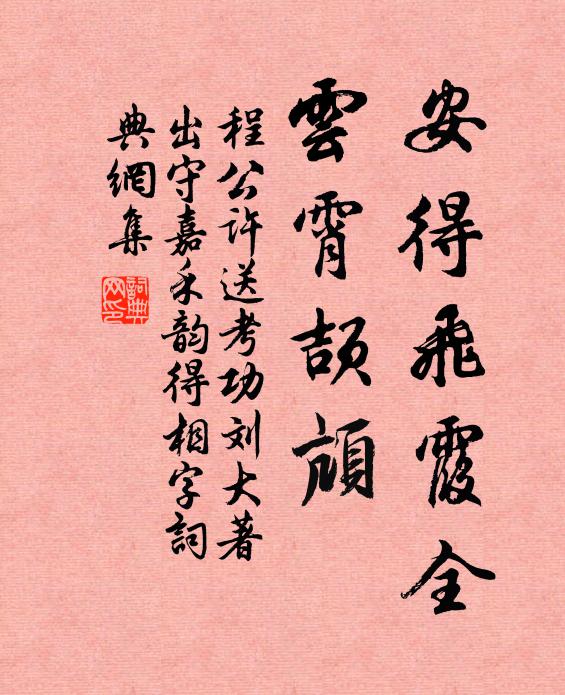 安得飛霞全
雲霄頡頏
程公许送考功刘大著
出守嘉禾韵得相字詞
典網集
詞典网印